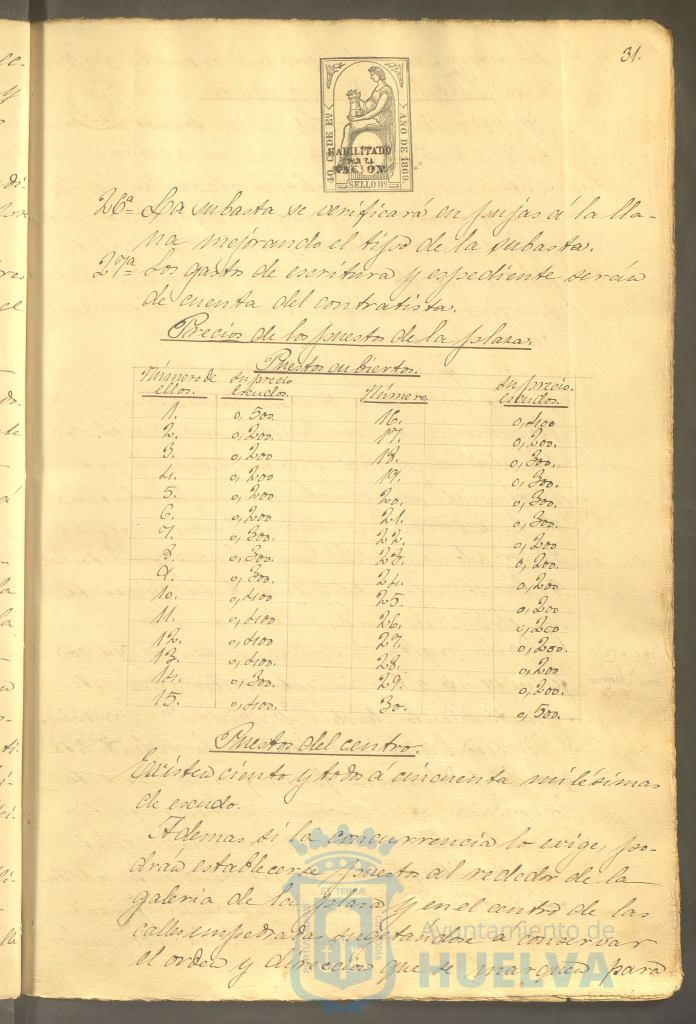 31.
40. CS. DE Eº
AÑO DE 1869.
HABILITADO
POR LA
NACION.
SELLO 8º
26ª La subasta se verificará en pujas á la lla-
na mejorando el tipo de la subasta.
27ª Los gasto de escritura y espediente serán
de cuenta del contratista.
Precios de los puesto de la plaza.
Puestos cubiertos.
Número de ellos. Su precio escudos. Número Su precio. escudos.
1. 0,500. 16. 0,400.
2. 0,200. 17. 0,200.
3. 0,200 18. 0,300.
4. 0,200 19. 0,300.
5. 0,200 20. 0,300.
6. 0,200 21. 0,300.
7. 0,300. 22. 0,200
8. 0,300. 23. 0,200.
9. 0,300. 24. 0,200
10. 0,400 25. 0,200
11. 0,400 26. 0,200
12. 0,400 27. 0,200.
13. 0,400. 28. 0,200
14. 0,300. 29. 0,200.
15. 0,400. 30. 0,500.
Puestos del centro.
Existen ciento y todos á cincuenta milésimas
de escudo.
Ademas si la concurrencia lo exige, po-
dran establecerse puesto al rededor de la
galeria de la plaza y en el centro de las
calles empedradas sugetandose á conservar
el orden y direccion que se marquen para
Ayuntamiento de
HUELVA